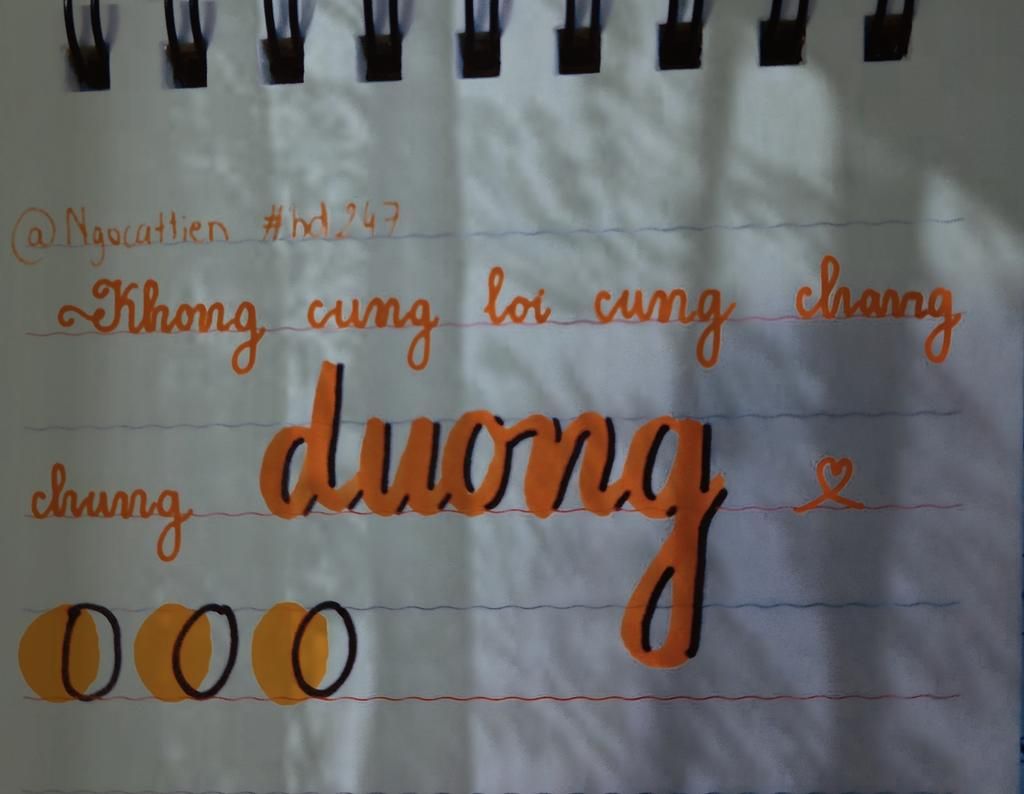 @Ngocattien #hd247
Khong cung loi cung chang
chung duong
000